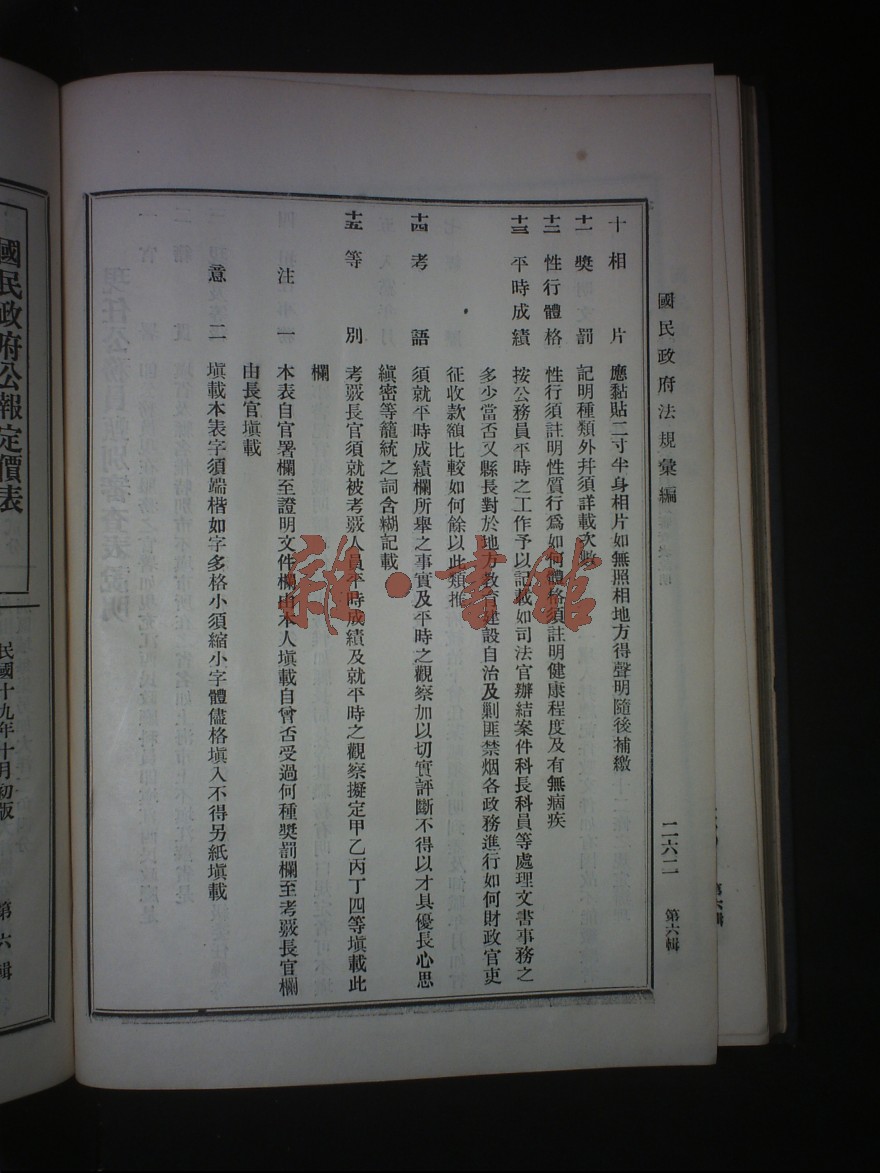 國民政府法規彙編
二六二
第六輯
十 相片 應黏貼二寸半身相片如無照相地方得聲明隨後補繳
十一 獎罰 記明種類外幷須詳載次數
十二 性行體格 性行須註明性質行爲如何體格須註明健康程度及有無病疾
十三 平時成績 按公務員平時之工作予以記載如司法官辦結案件科長科員等處理文書事務之
多少當否又縣長對於地方敎育建設自治及剿匪禁烟各政務進行如何財政官吏
征收款額比較如何餘以此類推
十四 考語 須就平時成績欄所舉之事實及平時之觀察加以切實評斷不得以才具優長心思
縝密等籠統之詞含糊記載
十五 等別 考覈長官須就被考覈人員平時成績及就平時之觀察擬定甲乙丙丁四等塡載此
欄
注 一 本表自官署欄至證明文件欄由本人塡載自曾否受過何種獎罰欄至考覈長官欄
由長官塡載
意 二 塡載本表字須端楷如字多格小須縮小字體儘格塡入不得另紙塡載
雜·書館
國民政府公報定價表
民國十九年十月初版
第六輯
第六輯